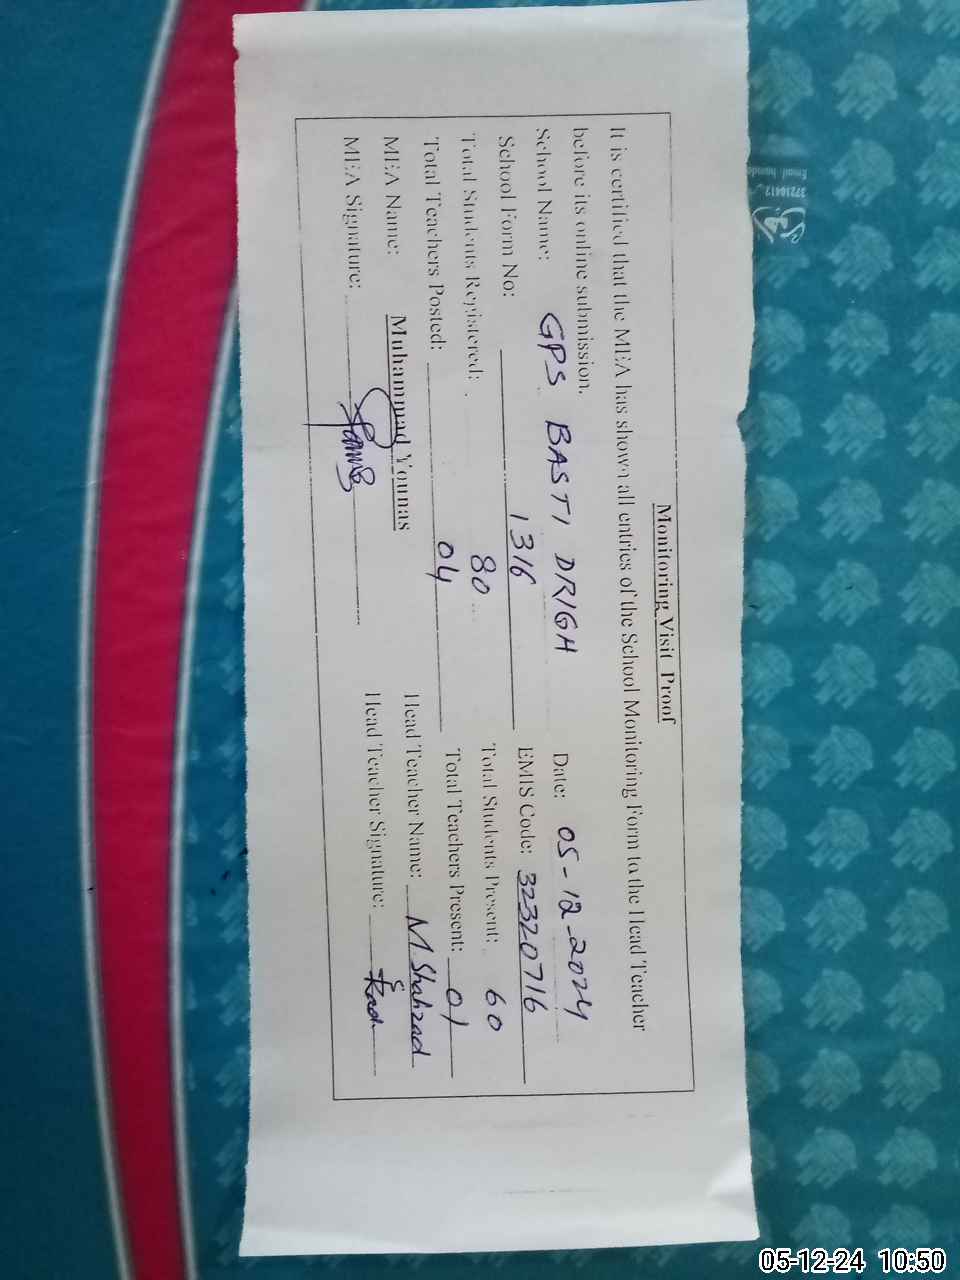 Monitoring Visit Proof
It is certified that the MEA has shown all entries of the School Monitoring Form to the Head Teacher
before its online submission.
School Name: GPS BASTI DRIGH Date: 05-12-2024
School Form No: 1316 EMIS Code: 32320716
Total Students Registered: 80 Total Students Present: 60
Total Teachers Posted: 04 Total Teachers Present: 01
MEA Name: Muhammad Younas Head Teacher Name: M Shahzad
MEA Signature: Head Teacher Signature:
37210412
Email
05-12-24 10:50